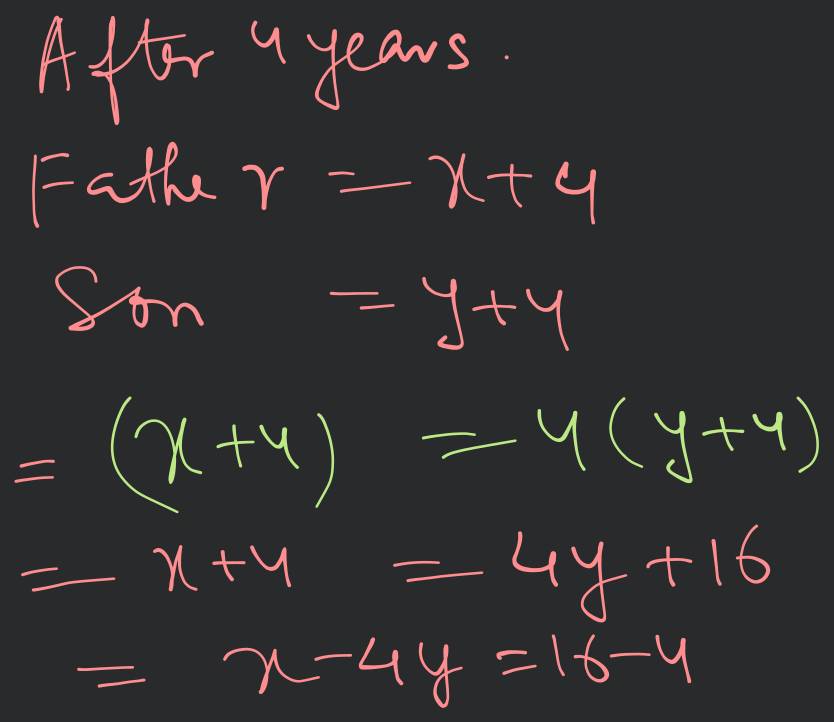 After 4 years.
Father = x+4
Son = y+4
= (x+4) = 4(y+4)
= x+4 = 4y+16
= x-4y = 16-4